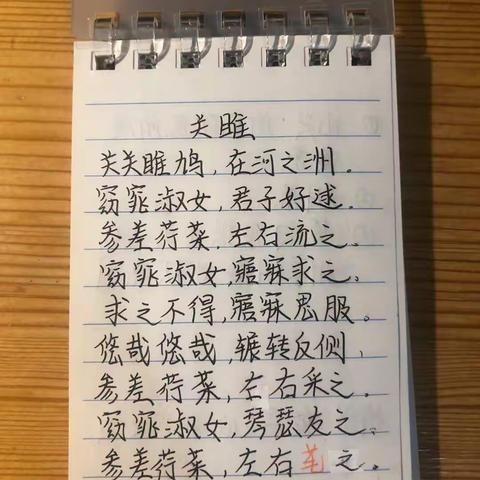 关雎
关关雎鸠，在河之洲。
窈窕淑女，君子好逑。
参差荇菜，左右流之。
窈窕淑女，寤寐求之。
求之不得，寤寐思服。
悠哉悠哉，辗转反侧，
参差荇菜，左右采之。
窈窕淑女，琴瑟友之。
参差荇菜，左右芼之。